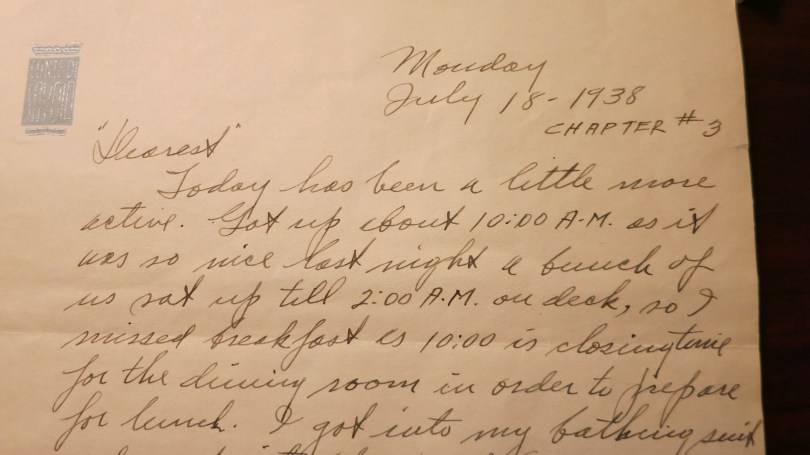 Monday
July 18-1938
CHAPTER #3
"Dearest"
Today has been a little more
active. Got up about 10:00 A.M. as it
was so nice last night a bunch of
us sat up till 2:00 A.M. on deck, so I
missed breakfast as 10:00 is closing time
for the dining room in order to prepare
for lunch. I got into my bathing suit